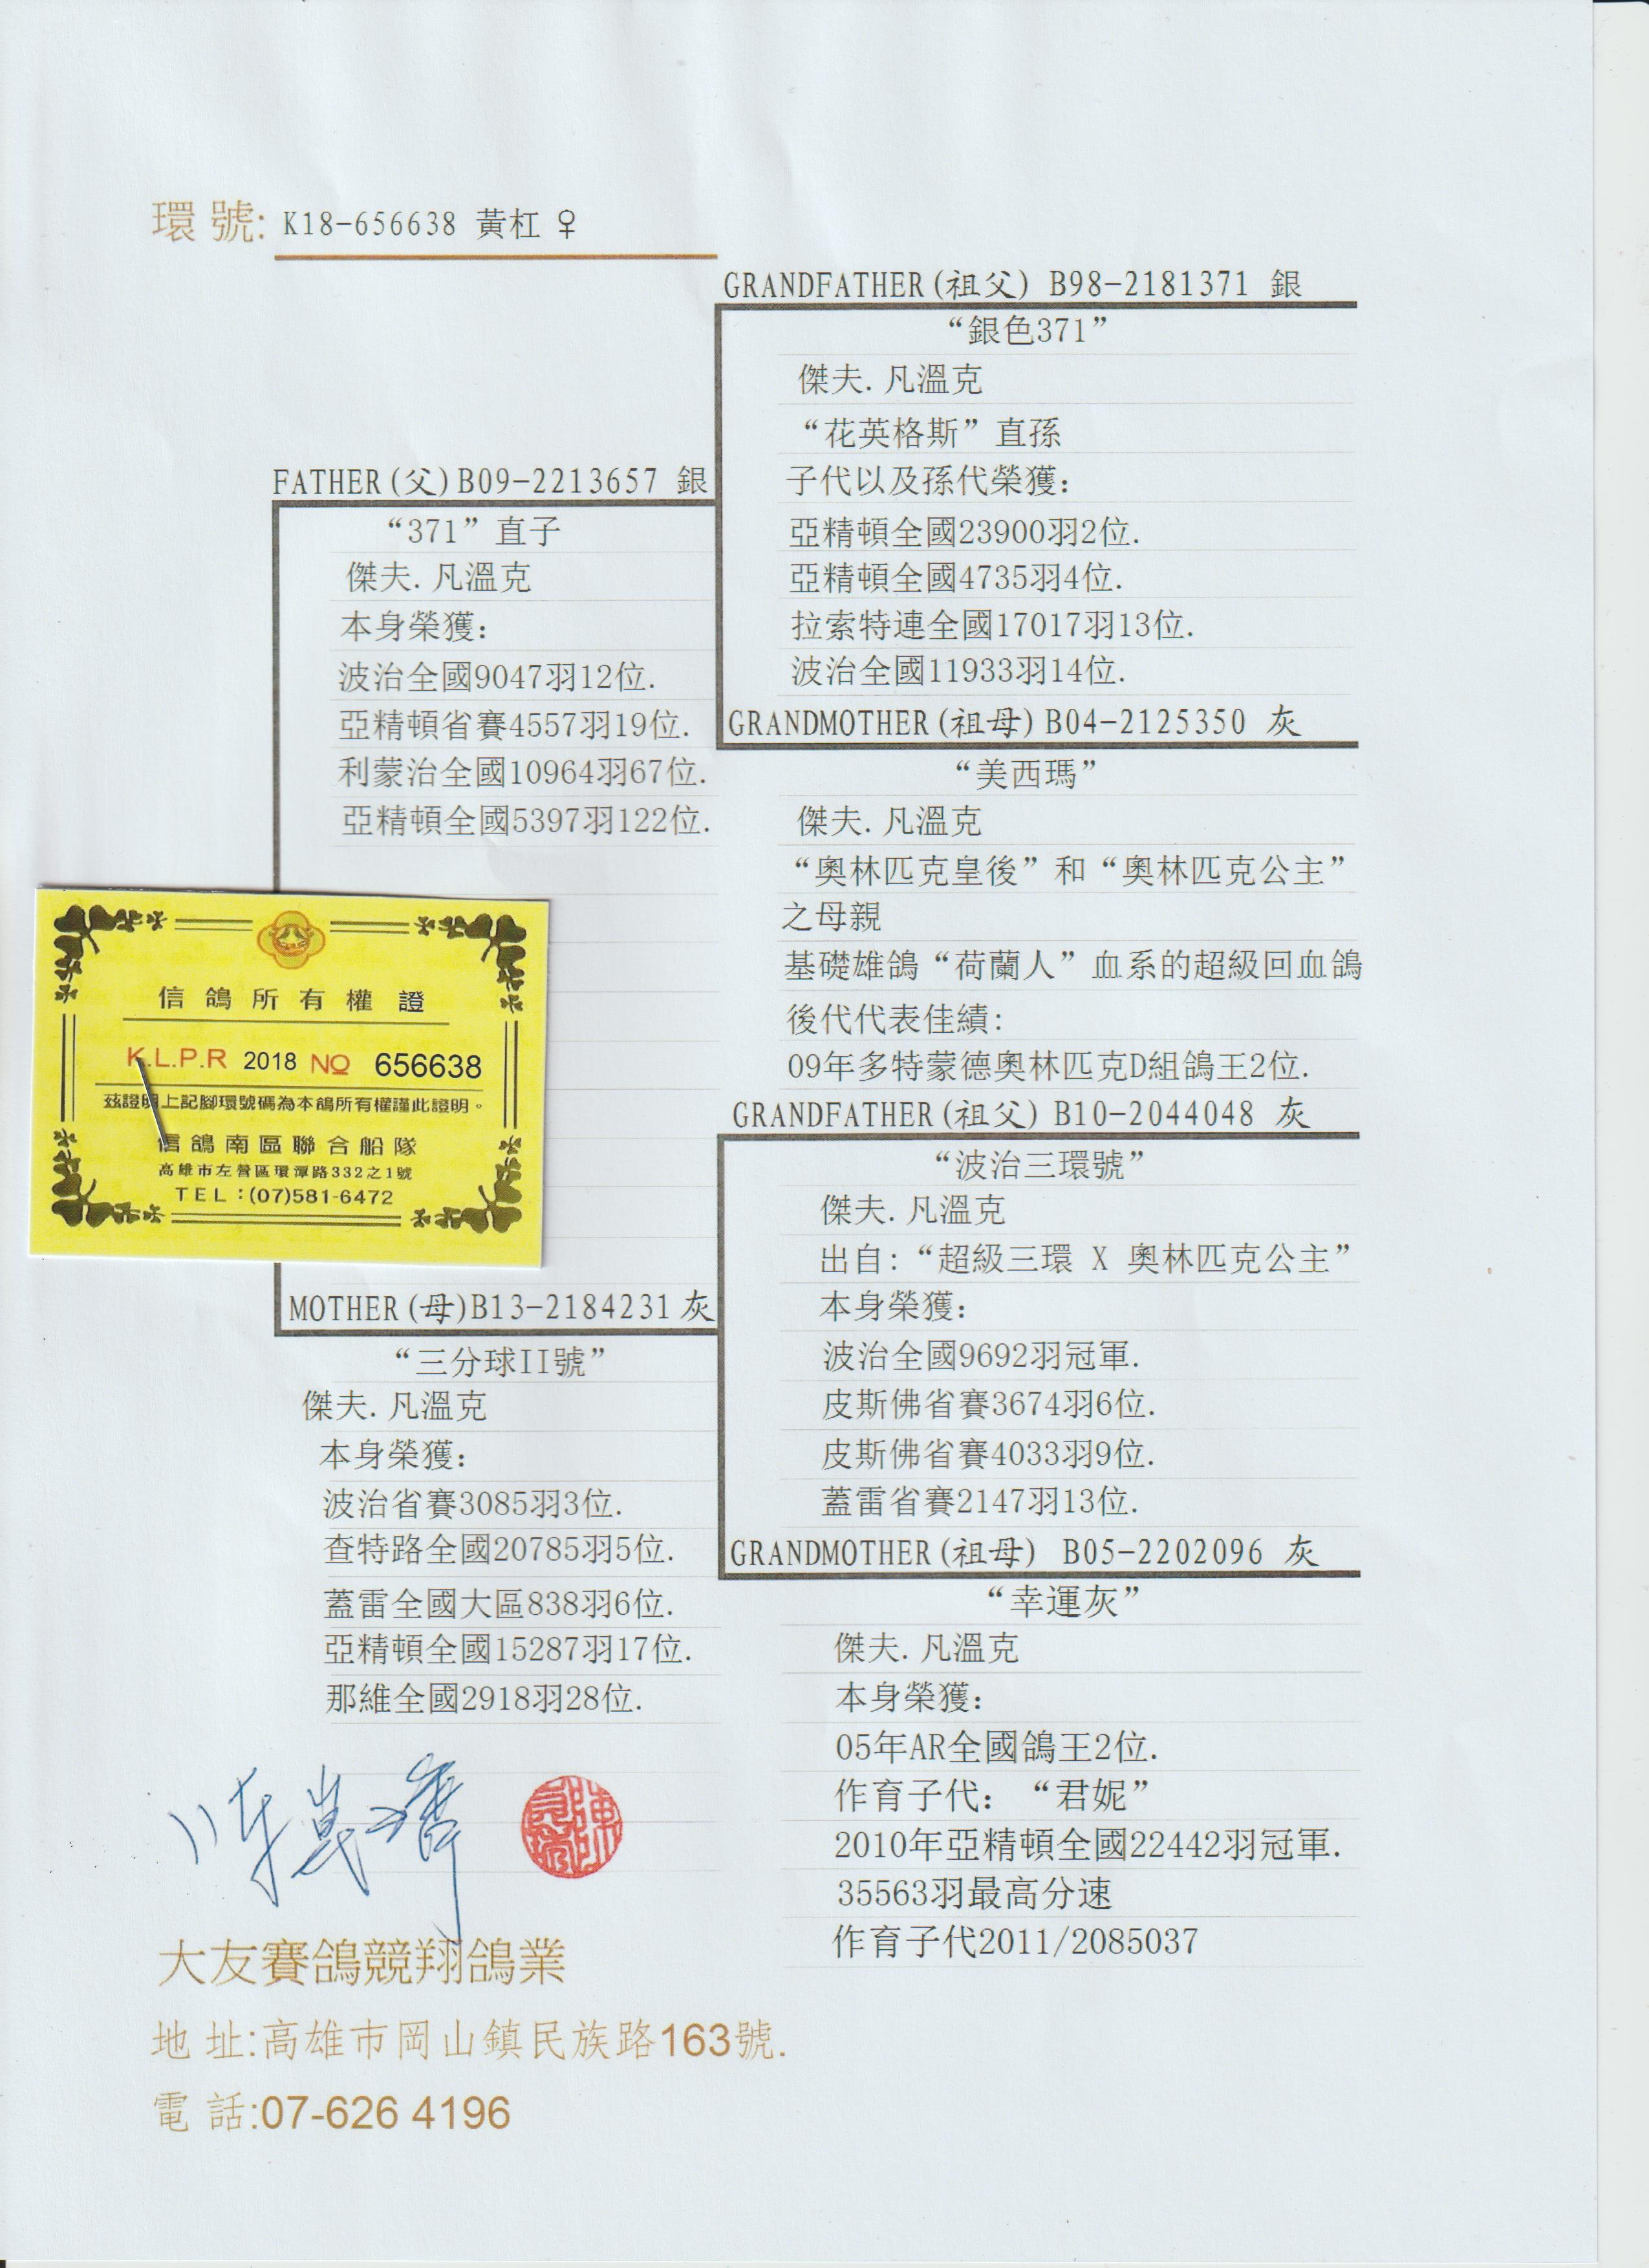 環 號: K18-656638 黃杠 ♀
FATHER(父)B09-2213657 銀
“371”直子
傑夫.凡溫克
本身榮獲:
波治全國9047羽12位.
亞精頓省賽4557羽19位.
利蒙治全國10964羽67位.
亞精頓全國5397羽122位.
GRANDFATHER(祖父) B98-2181371 銀
“銀色371”
傑夫.凡溫克
“花英格斯”直孫
子代以及孫代榮獲:
亞精頓全國23900羽2位.
亞精頓全國4735羽4位.
拉索特連全國17017羽13位.
波治全國11933羽14位.
GRANDMOTHER(祖母) B04-2125350 灰
“美西瑪”
傑夫.凡溫克
“奧林匹克皇後”和“奧林匹克公主”
之母親
基礎雄鴿“荷蘭人”血系的超級回血鴿
後代代表佳績:
09年多特蒙德奧林匹克D組鴿王2位.
信鴿所有權證
K.L.P.R 2018 NO 656638
茲證明上記腳環號碼為本鴿所有權謹此證明。
信鴿南區聯合船隊
高雄市左營區環潭路332之1號
TEL:(07)581-6472
MOTHER(母)B13-2184231 灰
“三分球II號”
傑夫.凡溫克
本身榮獲:
波治省賽3085羽3位.
查特路全國20785羽5位.
蓋雷全國大區838羽6位.
亞精頓全國15287羽17位.
那維全國2918羽28位.
GRANDFATHER(祖父) B10-2044048 灰
“波治三環號”
傑夫.凡溫克
出自:“超級三環 X 奧林匹克公主”
本身榮獲:
波治全國9692羽冠軍.
皮斯佛省賽3674羽6位.
皮斯佛省賽4033羽9位.
蓋雷省賽2147羽13位.
GRANDMOTHER(祖母) B05-2202096 灰
“幸運灰”
傑夫.凡溫克
本身榮獲:
05年AR全國鴿王2位.
作育子代: “君妮”
2010年亞精頓全國22442羽冠軍.
35563羽最高分速
作育子代2011/2085037
大友賽鴿競翔鴿業
地 址:高雄市岡山鎮民族路163號.
電 話:07-626 4196